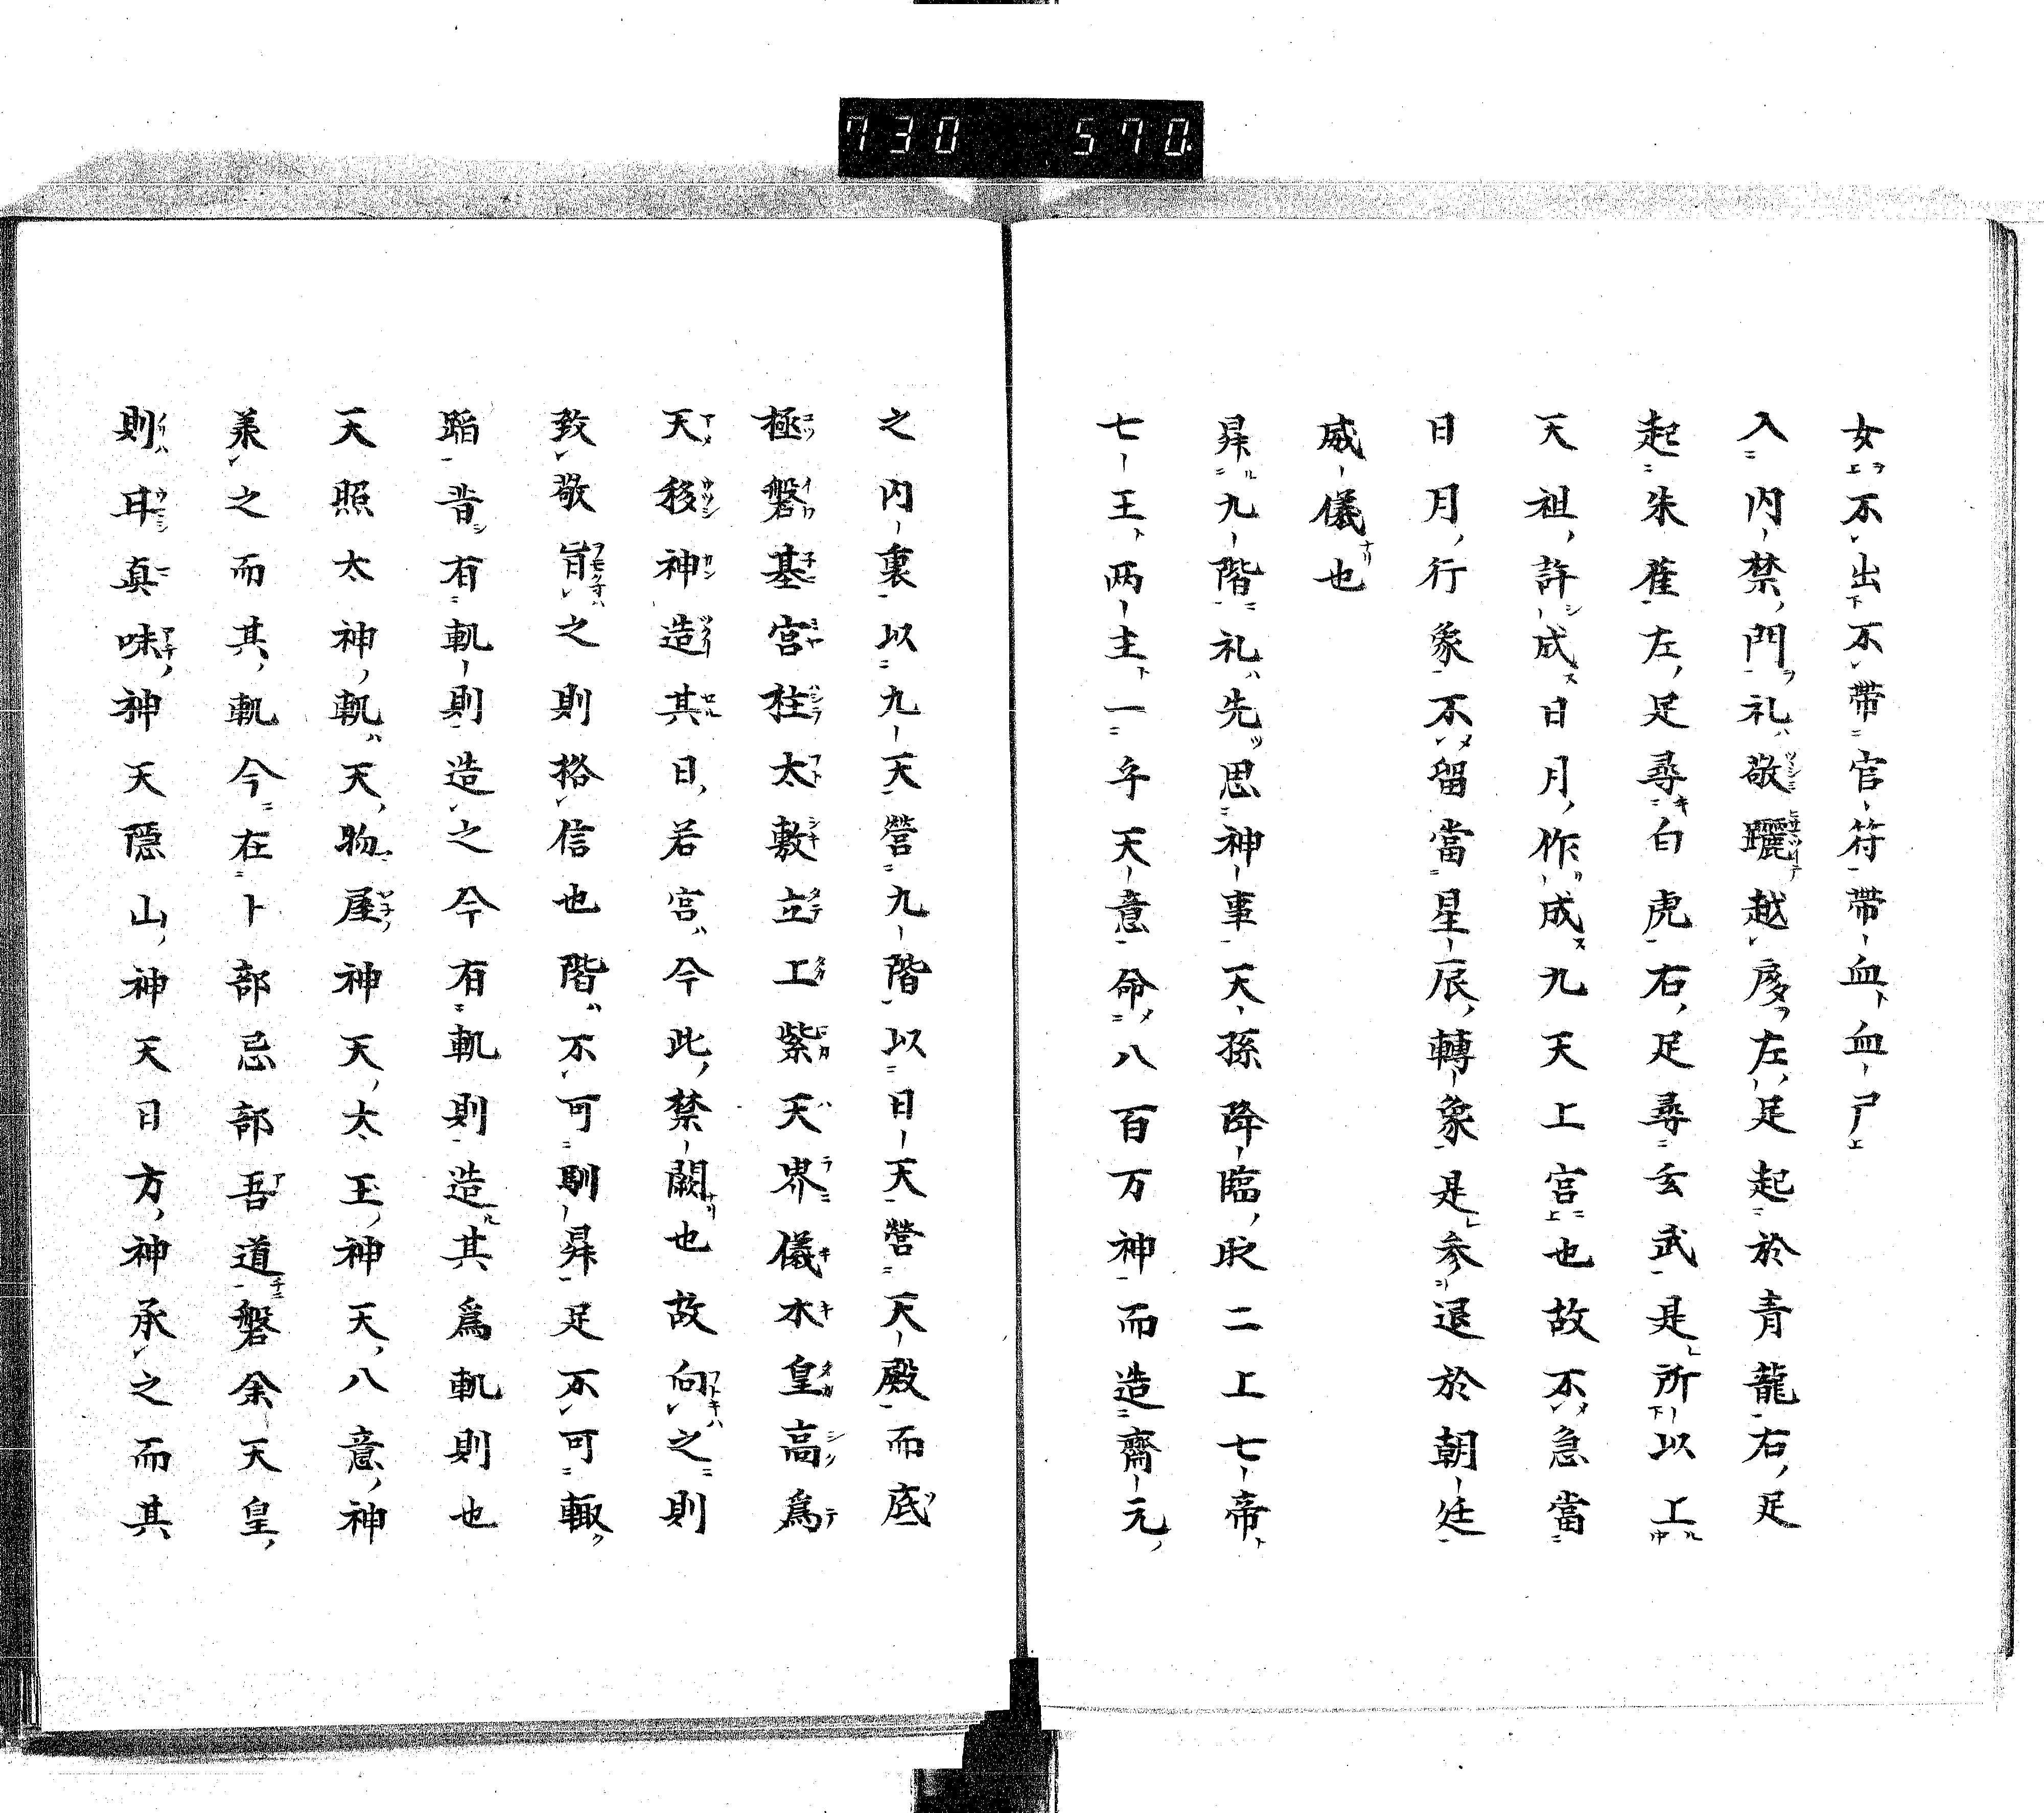 730 570.
女不出不帶官符帶血血尸
入内禁門礼敬躧越度左足起於青龍右足
起朱雀左足尋白虎右足尋玄武是所以上
天祖許成日月作成九天上宮也故不急當
日月行象不留當星辰轉象是参退於朝廷
威儀也
昇九階礼先思神事天孫降臨 二上七帝
七王两主一 天意命八百万神而造齋元
之内裏以九天營九階以日天營天殿而底
極磐基宮柱太敷立工紫天界儀木皇高爲
天移神造其日若宮今此禁闕也故向之則
致敬旨之則格信也階不可馴昇足不可輙
蹈昔有軌則造之今有軌則造其爲軌則也
天照太神軌天物屋神天太玉神天八意神
兼之而其軌今在卜部忌部吾道磐余天皇
則 真味神天隠山神天日方神承之而其